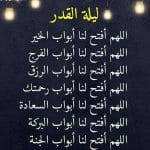 ليلة القدر
اللهم أفتح لنا أبواب الخير
اللهم أفتح لنا أبواب الفرج
اللهم أفتح لنا أبواب الرزق
اللهم أفتح لنا أبواب رحمتك
اللهم أفتح لنا أبواب السعادة
اللهم أفتح لنا أبواب البركة
اللهم أفتح لنا أبواب الجنة